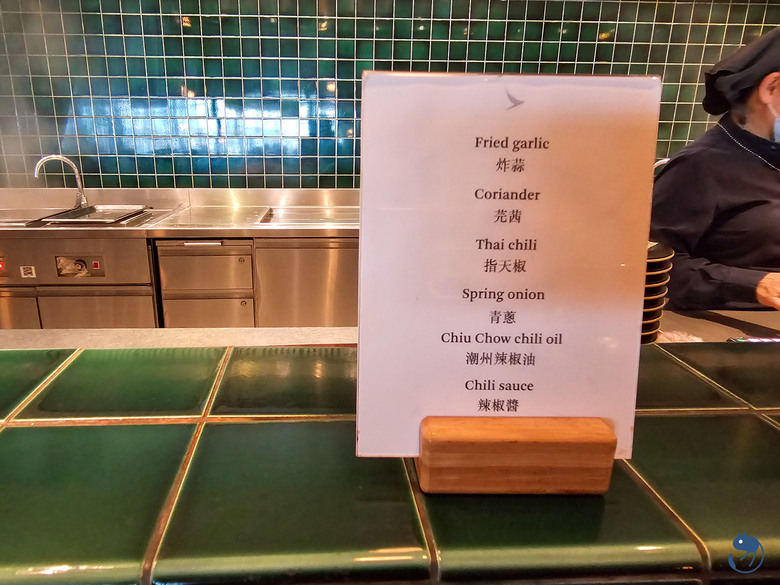 Fried garlic
炸蒜
Coriander
芫茜
Thai chili
指天椒
Spring onion
青蔥
Chiu Chow chili oil
潮州辣椒油
Chili sauce
辣椒醬